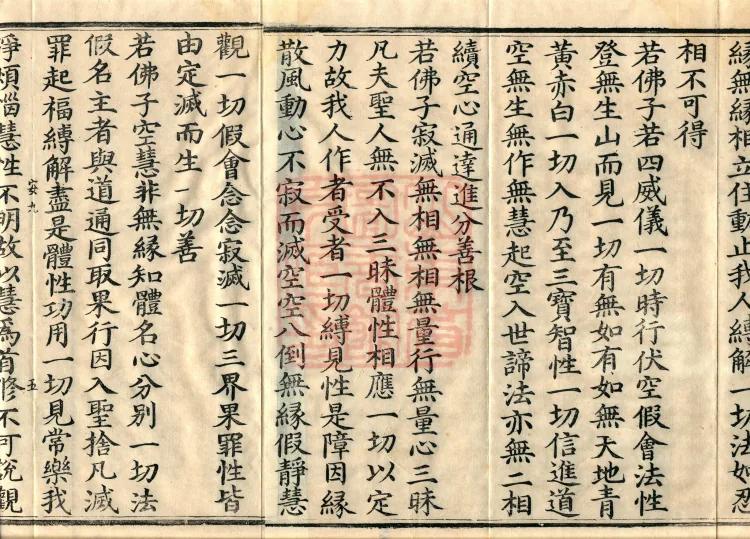 緣無緣相立住動止我人縛解一切法如忍
相不可得
若佛子若四威儀一切時行伏空假會法性
登無生山而見一切有無如有如無天地青
黃赤白一切入乃至三寶智性一切信進道
空無生無作無慧起空入世諦法亦無二相
續空心通達進分善根
若佛子寂滅無相無相無量行無量心三昧
凡夫聖人無不入三昧體性相應一切以定
力故我人作者受者一切縛見性是障因緣
散風動心不寂而滅空空八倒無緣假靜慧
觀一切假會念念寂滅一切三界果罪性皆
由定滅而生一切善
若佛子空慧非無緣知體名心分別一切法
假名主者與道通同取果行因入聖捨凡滅
罪起福縛解盡是體性功用一切見常樂我
安九 五
淨煩惱慧性不明故以慧爲首修不可說觀